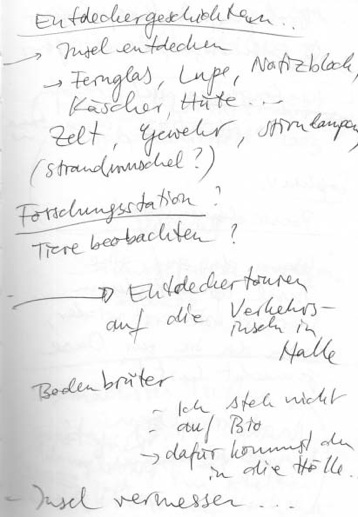 Entdeckergeschichten...
→ Insel entdecken
→ Fernglas, Lupe, Notizblock,
Käscher, Hüte...
Zelt, Gewehr, Stirnlampen
(Strandmuschel?)
Forschungsstation?
Tiere beobachten?
→ Entdeckertouren
auf die Verkehrs-
inseln in
Halle
Bodenbrüter
- Ich steh nicht
- auf Bio
→ dafür kommst du
in die Hölle.
- Insel vermessen...